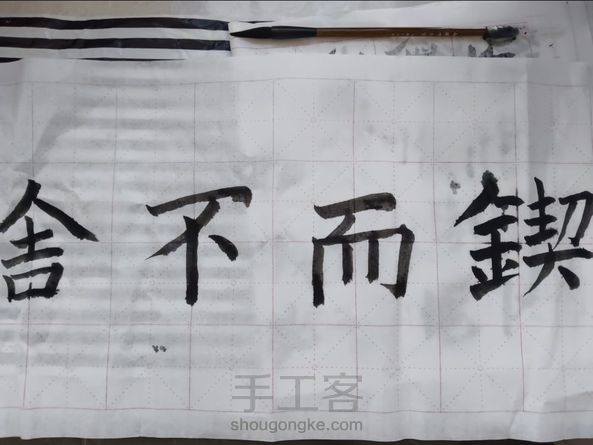 鍥而不舍
手工客
shougongke.com